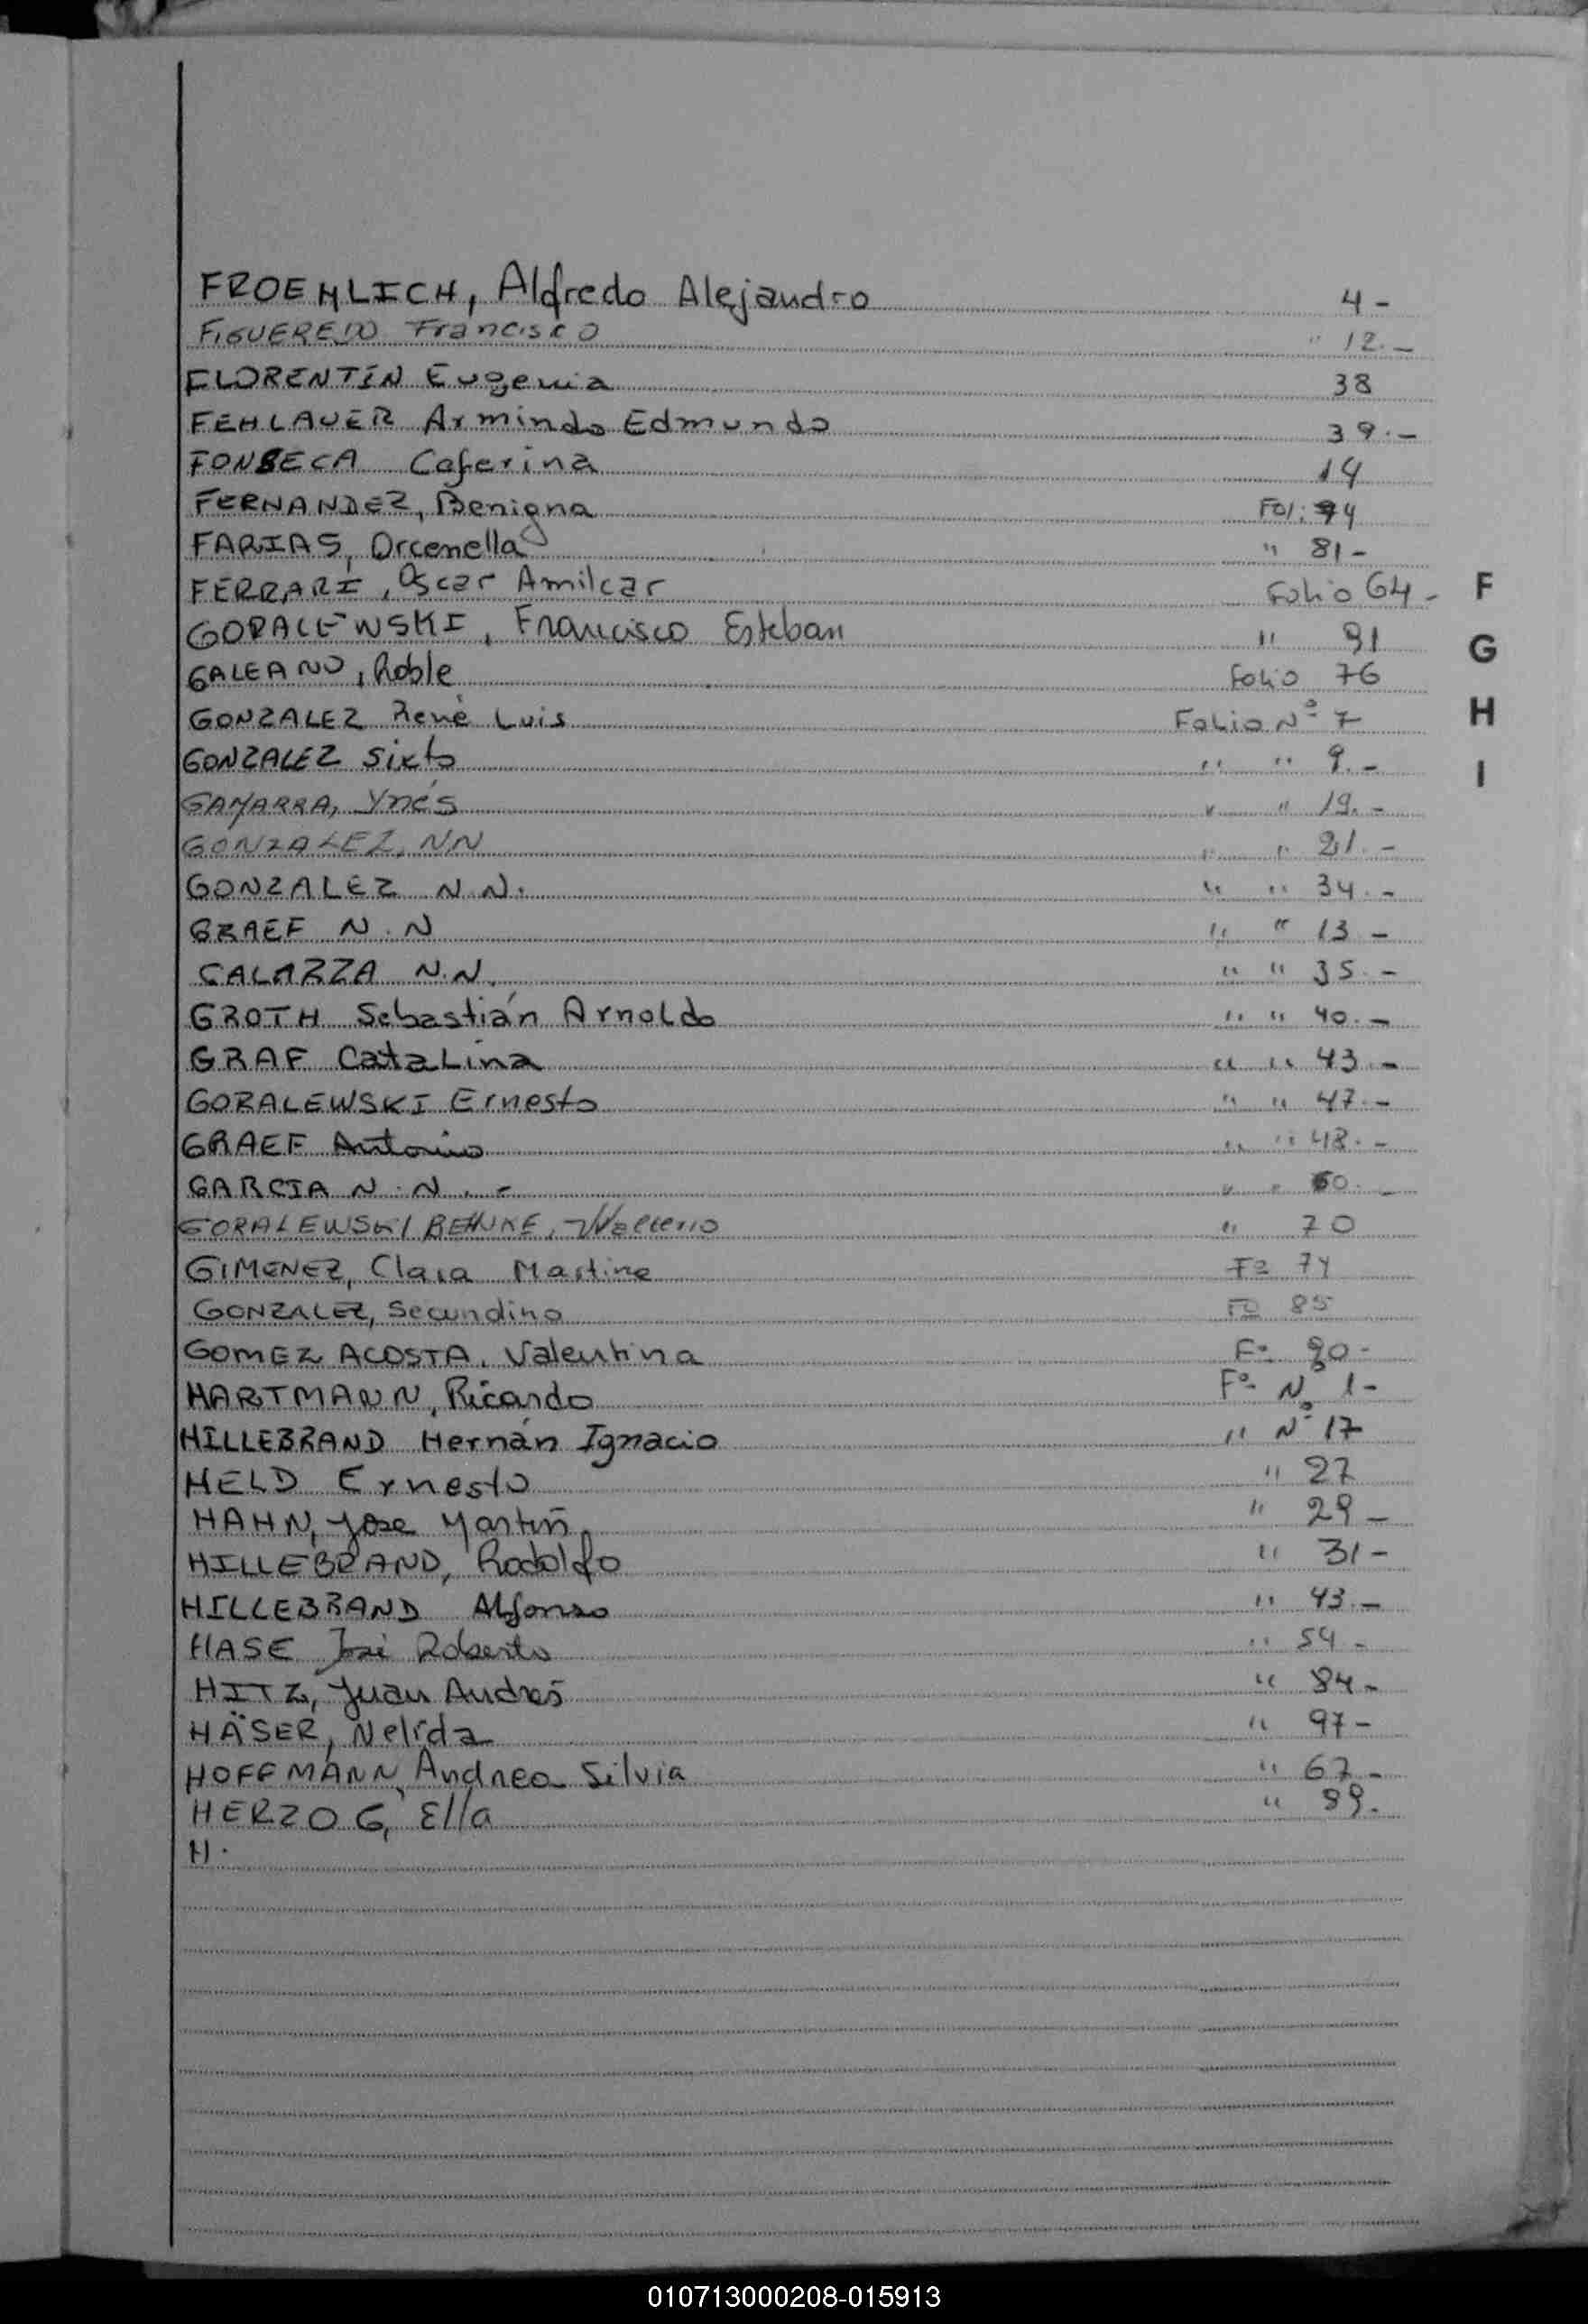 FROEHLICH, Alfredo Alejandro 4 -
FIGUEREDO Francisco " 12.-
FLORENTÍN Eugenia 38
FEHLAUER Armindo Edmundo 39.-
FONSECA Ceferina 14
FERNANDEZ, Benigna Fol: 94
FARIAS, Orcenella " 81-
FERRARI, Oscar Amilcar Folio 64-
GORALEWSKI, Francisco Esteban " 91
GALEANO, Roble Folio 76
GONZALEZ René Luis Folio Nº 7
GONZALEZ Sixto " " 9.-
GAMARRA, Ynés " " 19.-
GONZALEZ, NN " " 21.-
GONZALEZ N.N. " " 34.-
GRAEF N.N " " 13 -
GALARZZA N.N. " " 35.-
GROTH Sebastián Arnoldo " " 40.-
GRAF Catalina " " 43.-
GORALEWSKI Ernesto " " 47.-
GRAEF Antonio " " 48.-
GARCIA N.N.- " " 60.-
GORALEWSKI BEHNKE, Walterio " 70
GIMENEZ, Clara Martine Fº 74
GONZALEZ, Secundino Fº 85
GOMEZ ACOSTA, Valentina Fº 90-
HARTMANN, Ricardo Fº Nº 1-
HILLEBRAND Hernán Ignacio " Nº 17
HELD Ernesto " 27
HAHN, Jose Martin " 29-
HILLEBRAND, Rodolfo " 31-
HILLEBRAND Alfonso " 43.-
HASE José Roberto " 54-
HITZ, Juan Andres " 84-
HÄSER, Nelída " 97-
HOFFMANN, Andrea Silvia " 67-
HERZOG, Ella " 89.
H.
F
G
H
I
010713000208-015913